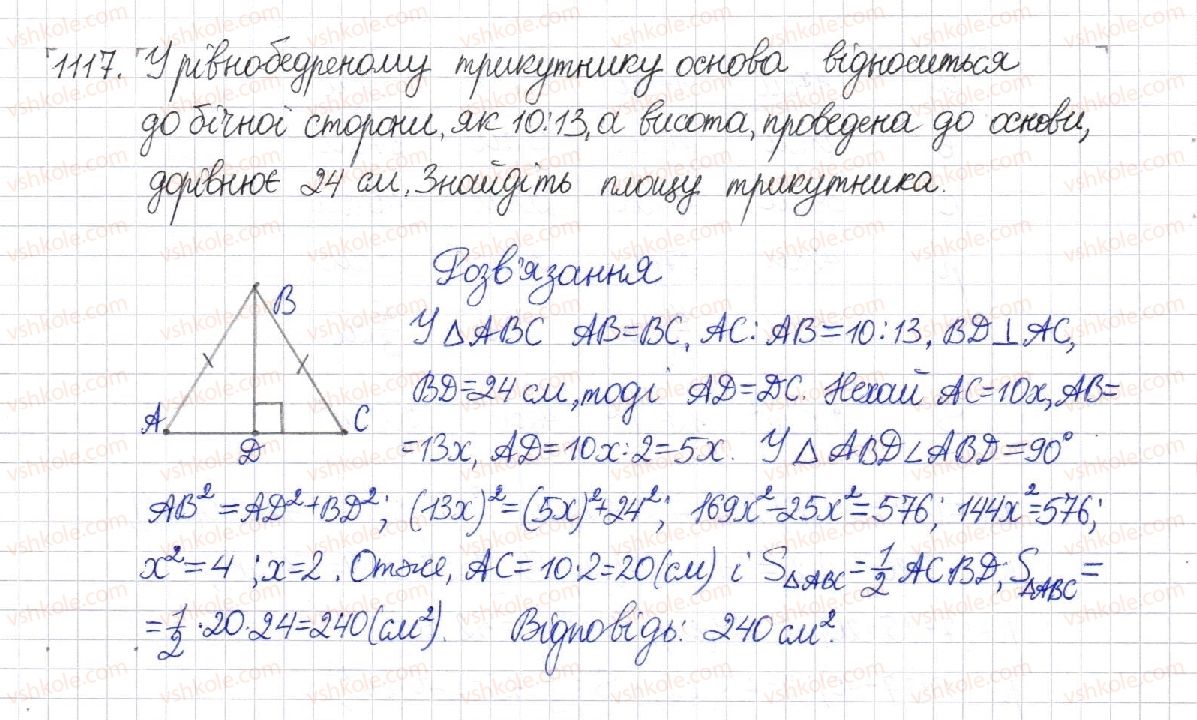 1117. У рівнобедреному трикутнику основа відноситься
до бічної сторони, як 10:13, а висота, проведена до основи,
дорівнює 24 см. Знайдіть площу трикутника.
Розв'язання
B
У △ABC AB=BC, AC:AB=10:13, BD⊥AC,
BD=24 см, тоді AD=DC. Нехай AC=10x, AB=
A
C
D
=13x, AD=10x:2=5x. У △ABD ∠ABD=90°
AB²=AD²+BD²; (13x)²=(5x)²+24²; 169x²-25x²=576; 144x²=576;
x²=4; x=2. Отже, AC=10·2=20(см) і S△ABC=1/2 AC BD; S△ABC=
=1/2·20·24=240(см²). Відповідь: 240 см².
vshkole.com